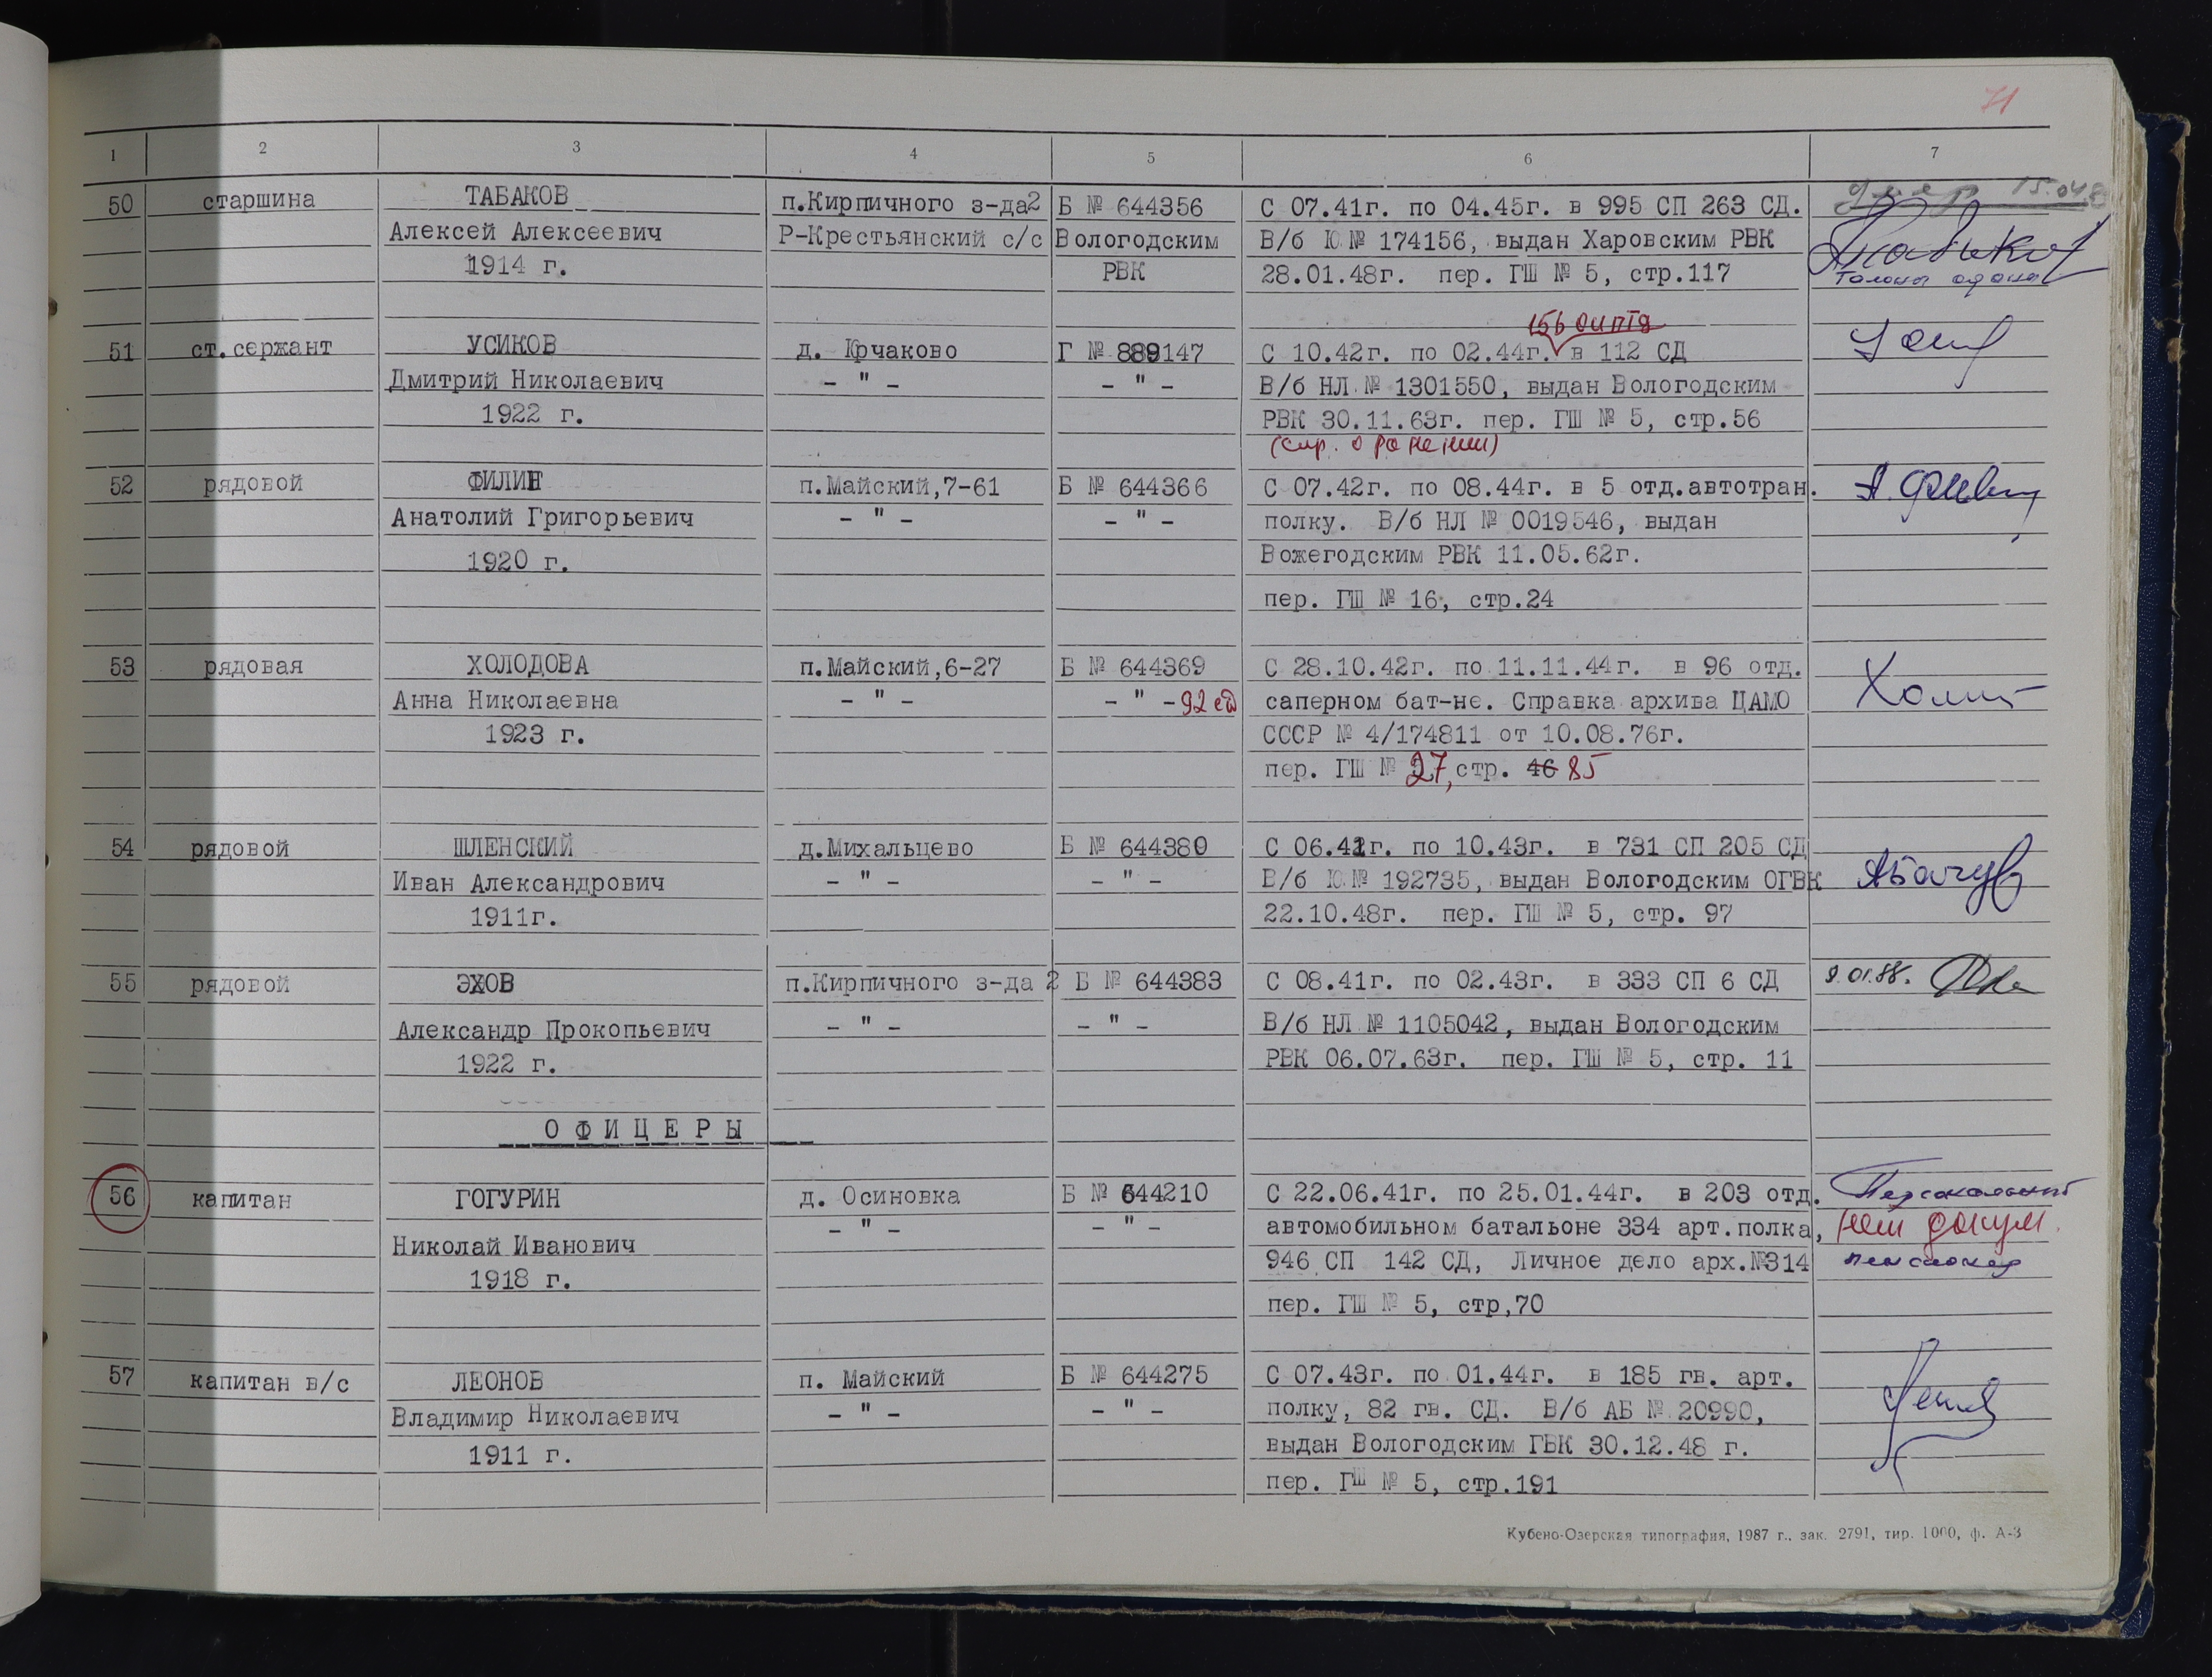 71
1 2 3 4 5 6 7
50 старшина ТАБАКОВ п.Кирпичного з-да2 Б № 644356 С 07.41г. по 04.45г. в 995 СП 263 СД.
Алексей Алексеевич Р-Крестьянский с/с Вологодским В/б Ю № 174156, выдан Харовским РВК
1914 г. РВК 28.01.48г. пер. ГШ № 5, стр.117
51 ст.сержант УСИКОВ д. Крчаково Г № 889147 С 10.42г. по 02.44г. в 112 СД
Дмитрий Николаевич - " - - " - В/б НЛ № 1301550, выдан Вологодским
1922 г. РВК 30.11.63г. пер. ГШ № 5, стр.56
(спр. о ранении)
52 рядовой ФИЛИН п.Майский,7-61 Б № 644366 С 07.42г. по 08.44г. в 5 отд.автотран.
Анатолий Григорьевич - " - - " - полку. В/б НЛ № 0019546, выдан
1920 г. Вожегодским РВК 11.05.62г.
пер. ГШ № 16, стр.24
53 рядовая ХОЛОДОВА п.Майский,6-27 Б № 644369 С 28.10.42г. по 11.11.44г. в 96 отд.
Анна Николаевна - " - - " - саперном бат-не. Справка архива ЦАМО
1923 г. СССР № 4/174811 от 10.08.76г.
пер. ГШ № 27, стр. 46 85
54 рядовой ШЛЕНСКИЙ д.Михальцево Б № 644380 С 06.42г. по 10.43г. в 731 СП 205 СД
Иван Александрович - " - - " - В/б Ю № 192735, выдан Вологодским ОГВК
1911г. 22.10.48г. пер. ГШ № 5, стр. 97
55 рядовой ЭХОВ п.Кирпичного з-да 2 Б № 644383 С 08.41г. по 02.43г. в 333 СП 6 СД 9.01.88.
Александр Прокопьевич - " - - " - В/б НЛ № 1105042, выдан Вологодским
1922 г. РВК 06.07.63г. пер. ГШ № 5, стр. 11
ОФИЦЕРЫ
56 капитан ГОГУРИН д. Осиновка Б № 644210 С 22.06.41г. по 25.01.44г. в 203 отд. Персональный
Николай Иванович - " - - " - автомобильном батальоне 334 арт.полка, нет докум.
1918 г. 946 СП 142 СД, Личное дело арх.№314 пенсионер
пер. ГШ № 5, стр,70
57 капитан в/с ЛЕОНОВ п. Майский Б № 644275 С 07.43г. по 01.44г. в 185 гв. арт.
Владимир Николаевич - " - - " - полку, 82 гв. СД. В/б АБ № 20990,
1911 г. выдан Вологодским ГВК 30.12.48 г.
пер. ГШ № 5, стр.191
Кубено-Озерская типография, 1987 г., зак. 2791, тир. 1000, ф. А-3